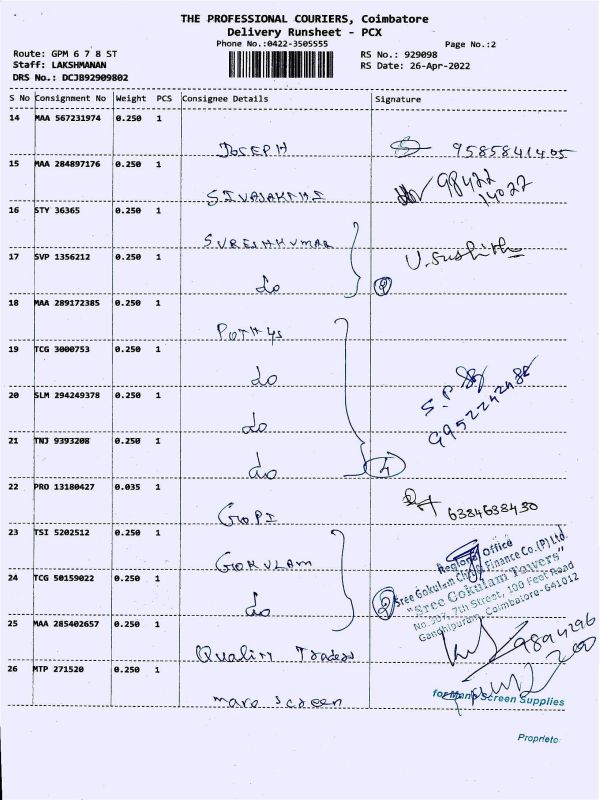 THE PROFESSIONAL COURIERS, Coimbatore
Delivery Runsheet - PCX
Phone No.:0422-3505555
Page No.:2
Route: GPM 6 7 8 ST
RS No.: 929098
Staff: LAKSHMANAN
RS Date: 26-Apr-2022
DRS No.: DCJB92909802
S No Consignment No Weight PCS Consignee Details Signature
14 MAA 567231974 0.250 1
JOSEPH 9585841405
15 MAA 284897176 0.250 1
98422
14022
16 STY 36365 0.250 1
SURESHKUMAR
17 SVP 1356212 0.250 1
U.Sushith
do 2
18 MAA 289172385 0.250 1
POTHYS
19 TCG 3000753 0.250 1
do
20 SLM 294249378 0.250 1
do
S.P
21 TNJ 9393208 0.250 1
do 4
22 PRO 13180427 0.035 1
GOPI 6384638430
23 TSI 5202512 0.250 1
GOKULAM
Regional Office
Sree Gokulam Chit & Finance Co.(P) Ltd.
"Sree Gokulam Towers"
No.307, 7th Street, 100 Feet Road
Gandhipuram, Coimbatore-641012
24 TCG 50159022 0.250 1
do 2
25 MAA 285402657 0.250 1
Quality Traders
26 MTP 271520 0.250 1
mano screen
for Mano Screen Supplies
Proprieto